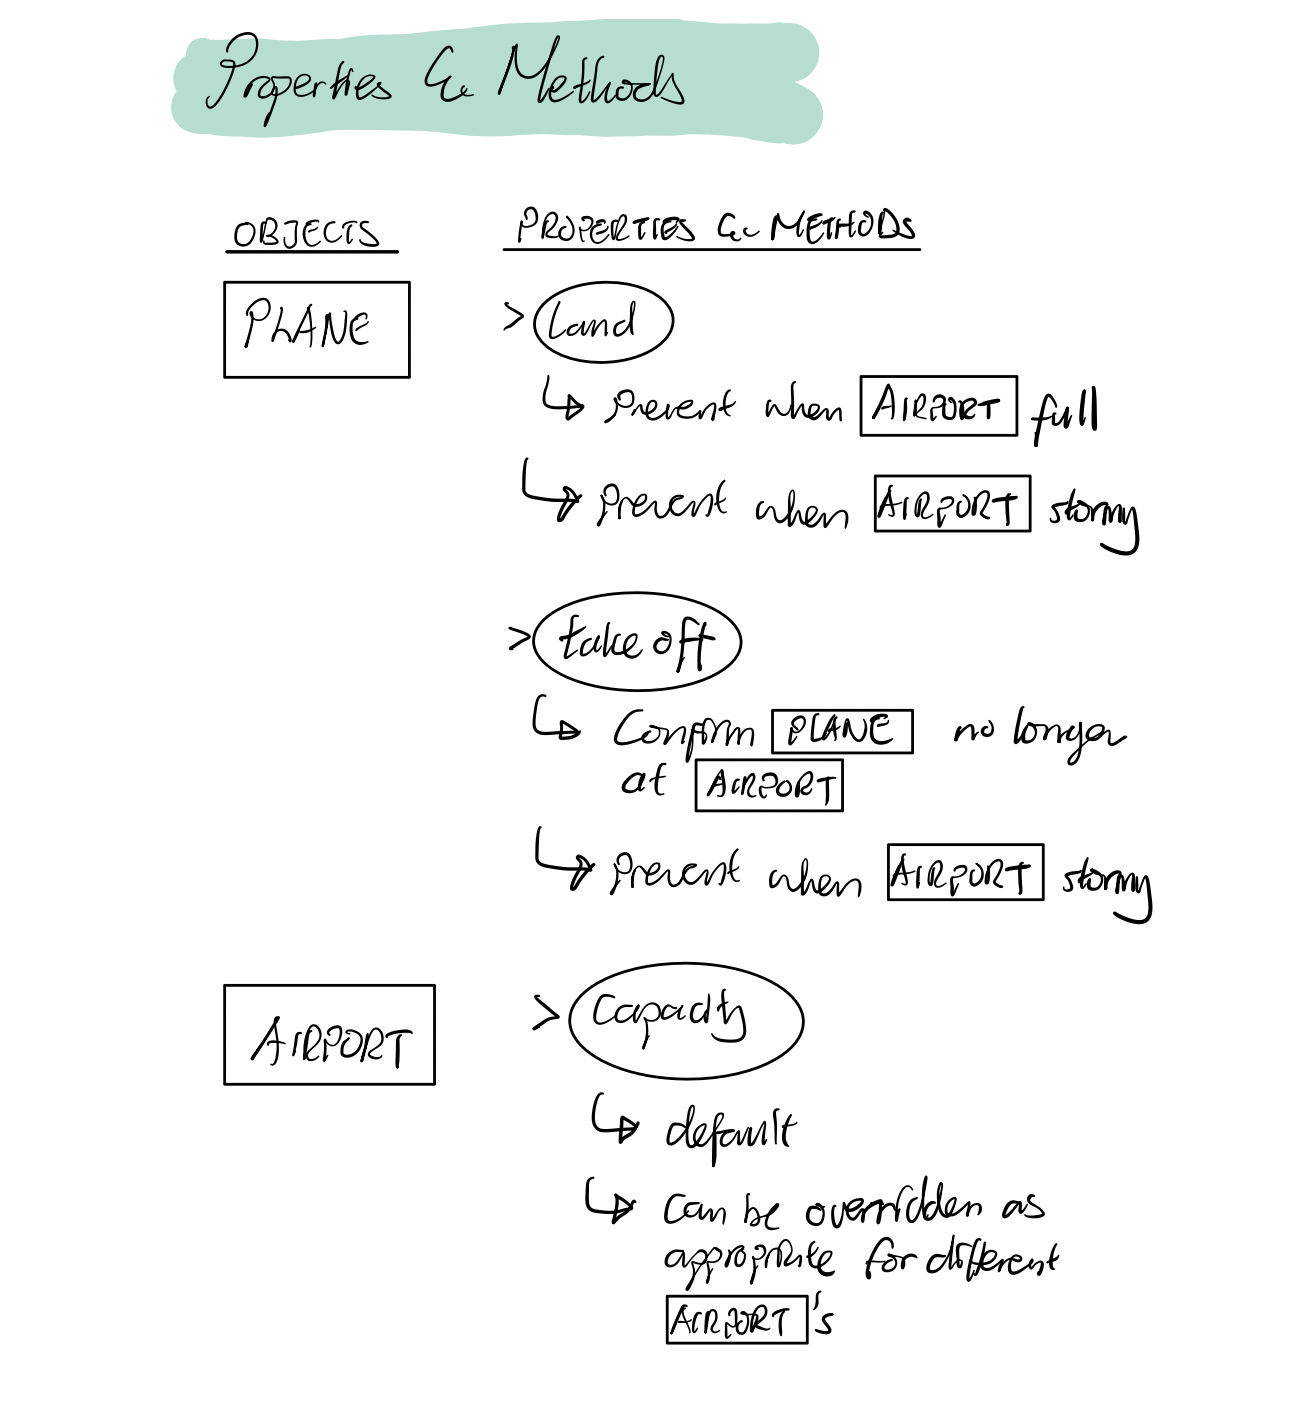 Properties & Methods
OBJECTS
PROPERTIES & METHODS
PLANE
> Land
Prevent when AIRPORT full
Prevent when AIRPORT stormy
> take off
Confirm PLANE no longer
at AIRPORT
Prevent when AIRPORT stormy
AIRPORT
> Capacity
default
Can be overridden as
appropriate for different
AIRPORT's